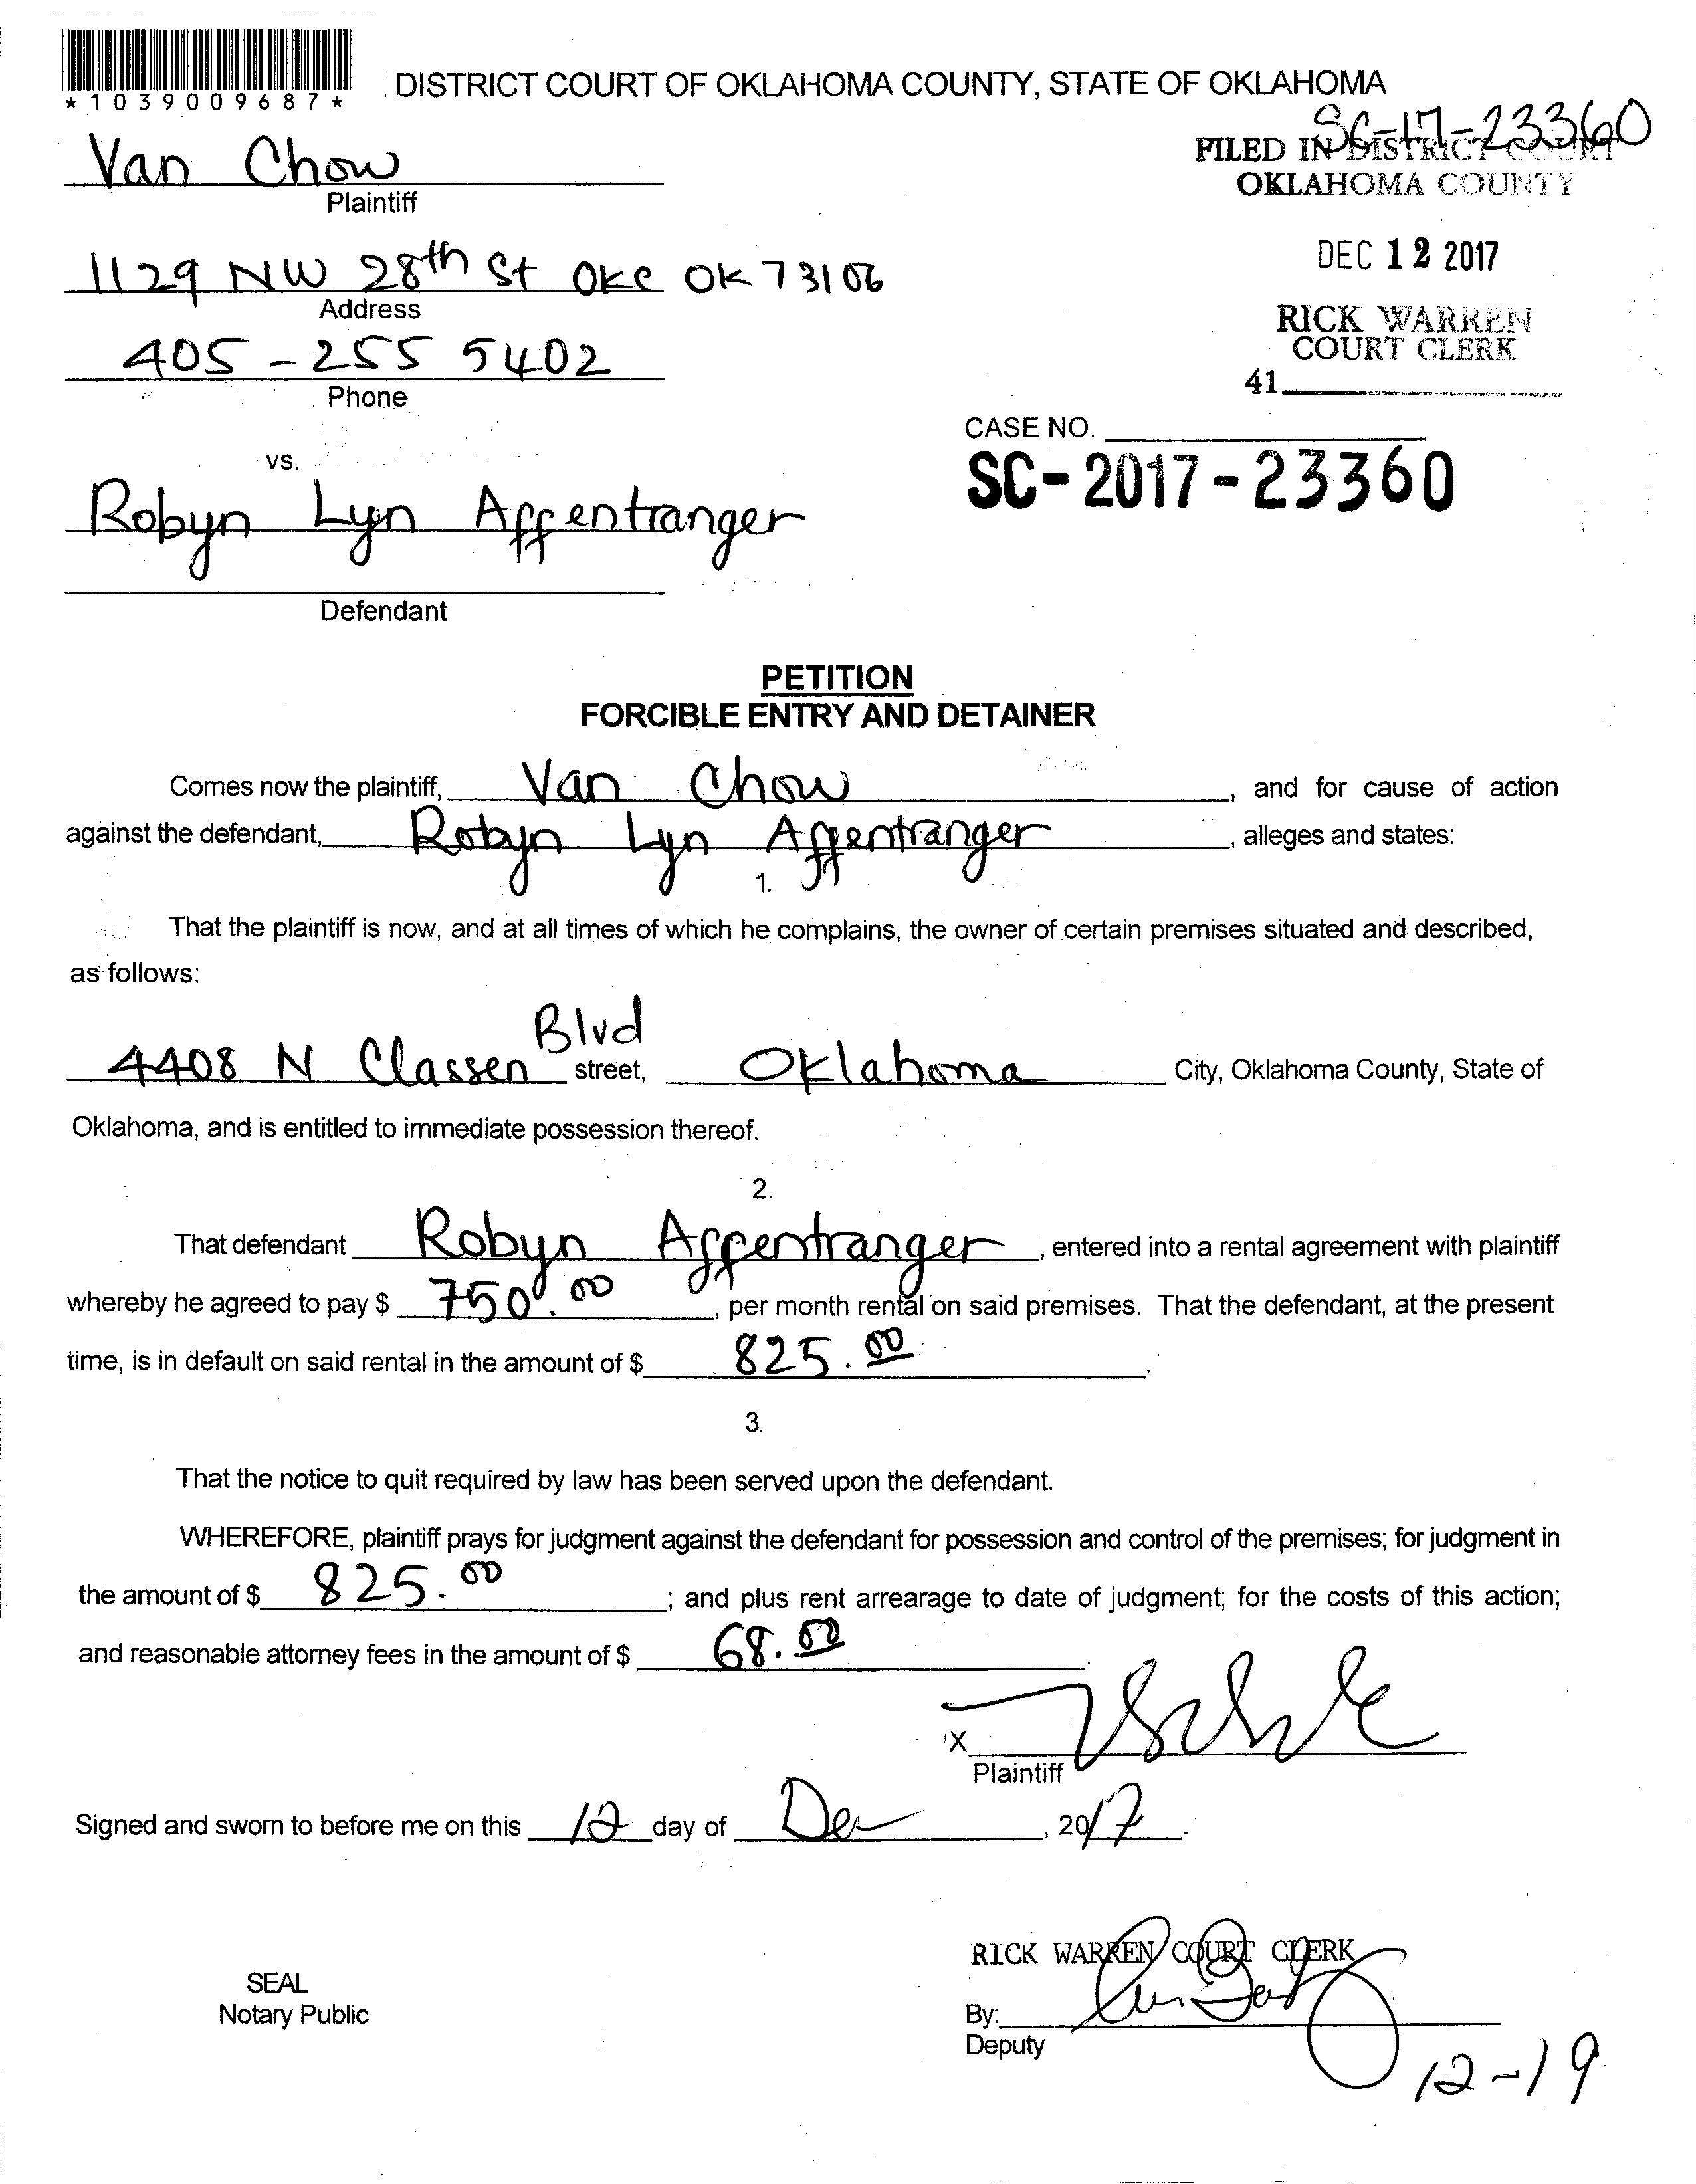 *1039009687*
DISTRICT COURT OF OKLAHOMA COUNTY, STATE OF OKLAHOMA
SC-17-23360
Van Chow
FILED IN DISTRICT COURT
OKLAHOMA COUNTY
Plaintiff
DEC 12 2017
1129 NW 28th St OKC OK 73106
Address
RICK WARREN
COURT CLERK
405-255 5402
41
Phone
CASE NO.
vs.
SC-2017-23360
Robyn Lyn Affentranger
Defendant
PETITION
FORCIBLE ENTRY AND DETAINER
Comes now the plaintiff, Van Chow, and for cause of action
against the defendant, Robyn Lyn Affentranger, alleges and states:
1.
That the plaintiff is now, and at all times of which he complains, the owner of certain premises situated and described,
as follows:
4408 N Classen Blvd street, Oklahoma City, Oklahoma County, State of
Oklahoma, and is entitled to immediate possession thereof.
2.
That defendant Robyn Affentranger, entered into a rental agreement with plaintiff
whereby he agreed to pay $ 750.00, per month rental on said premises. That the defendant, at the present
time, is in default on said rental in the amount of $ 825.00.
3.
That the notice to quit required by law has been served upon the defendant.
WHEREFORE, plaintiff prays for judgment against the defendant for possession and control of the premises; for judgment in
the amount of $ 825.00; and plus rent arrearage to date of judgment; for the costs of this action;
and reasonable attorney fees in the amount of $ 68.00.
X
Plaintiff
Signed and sworn to before me on this 12 day of Dec, 2017.
RICK WARREN COURT CLERK
SEAL
Notary Public
By:
Deputy
12-19